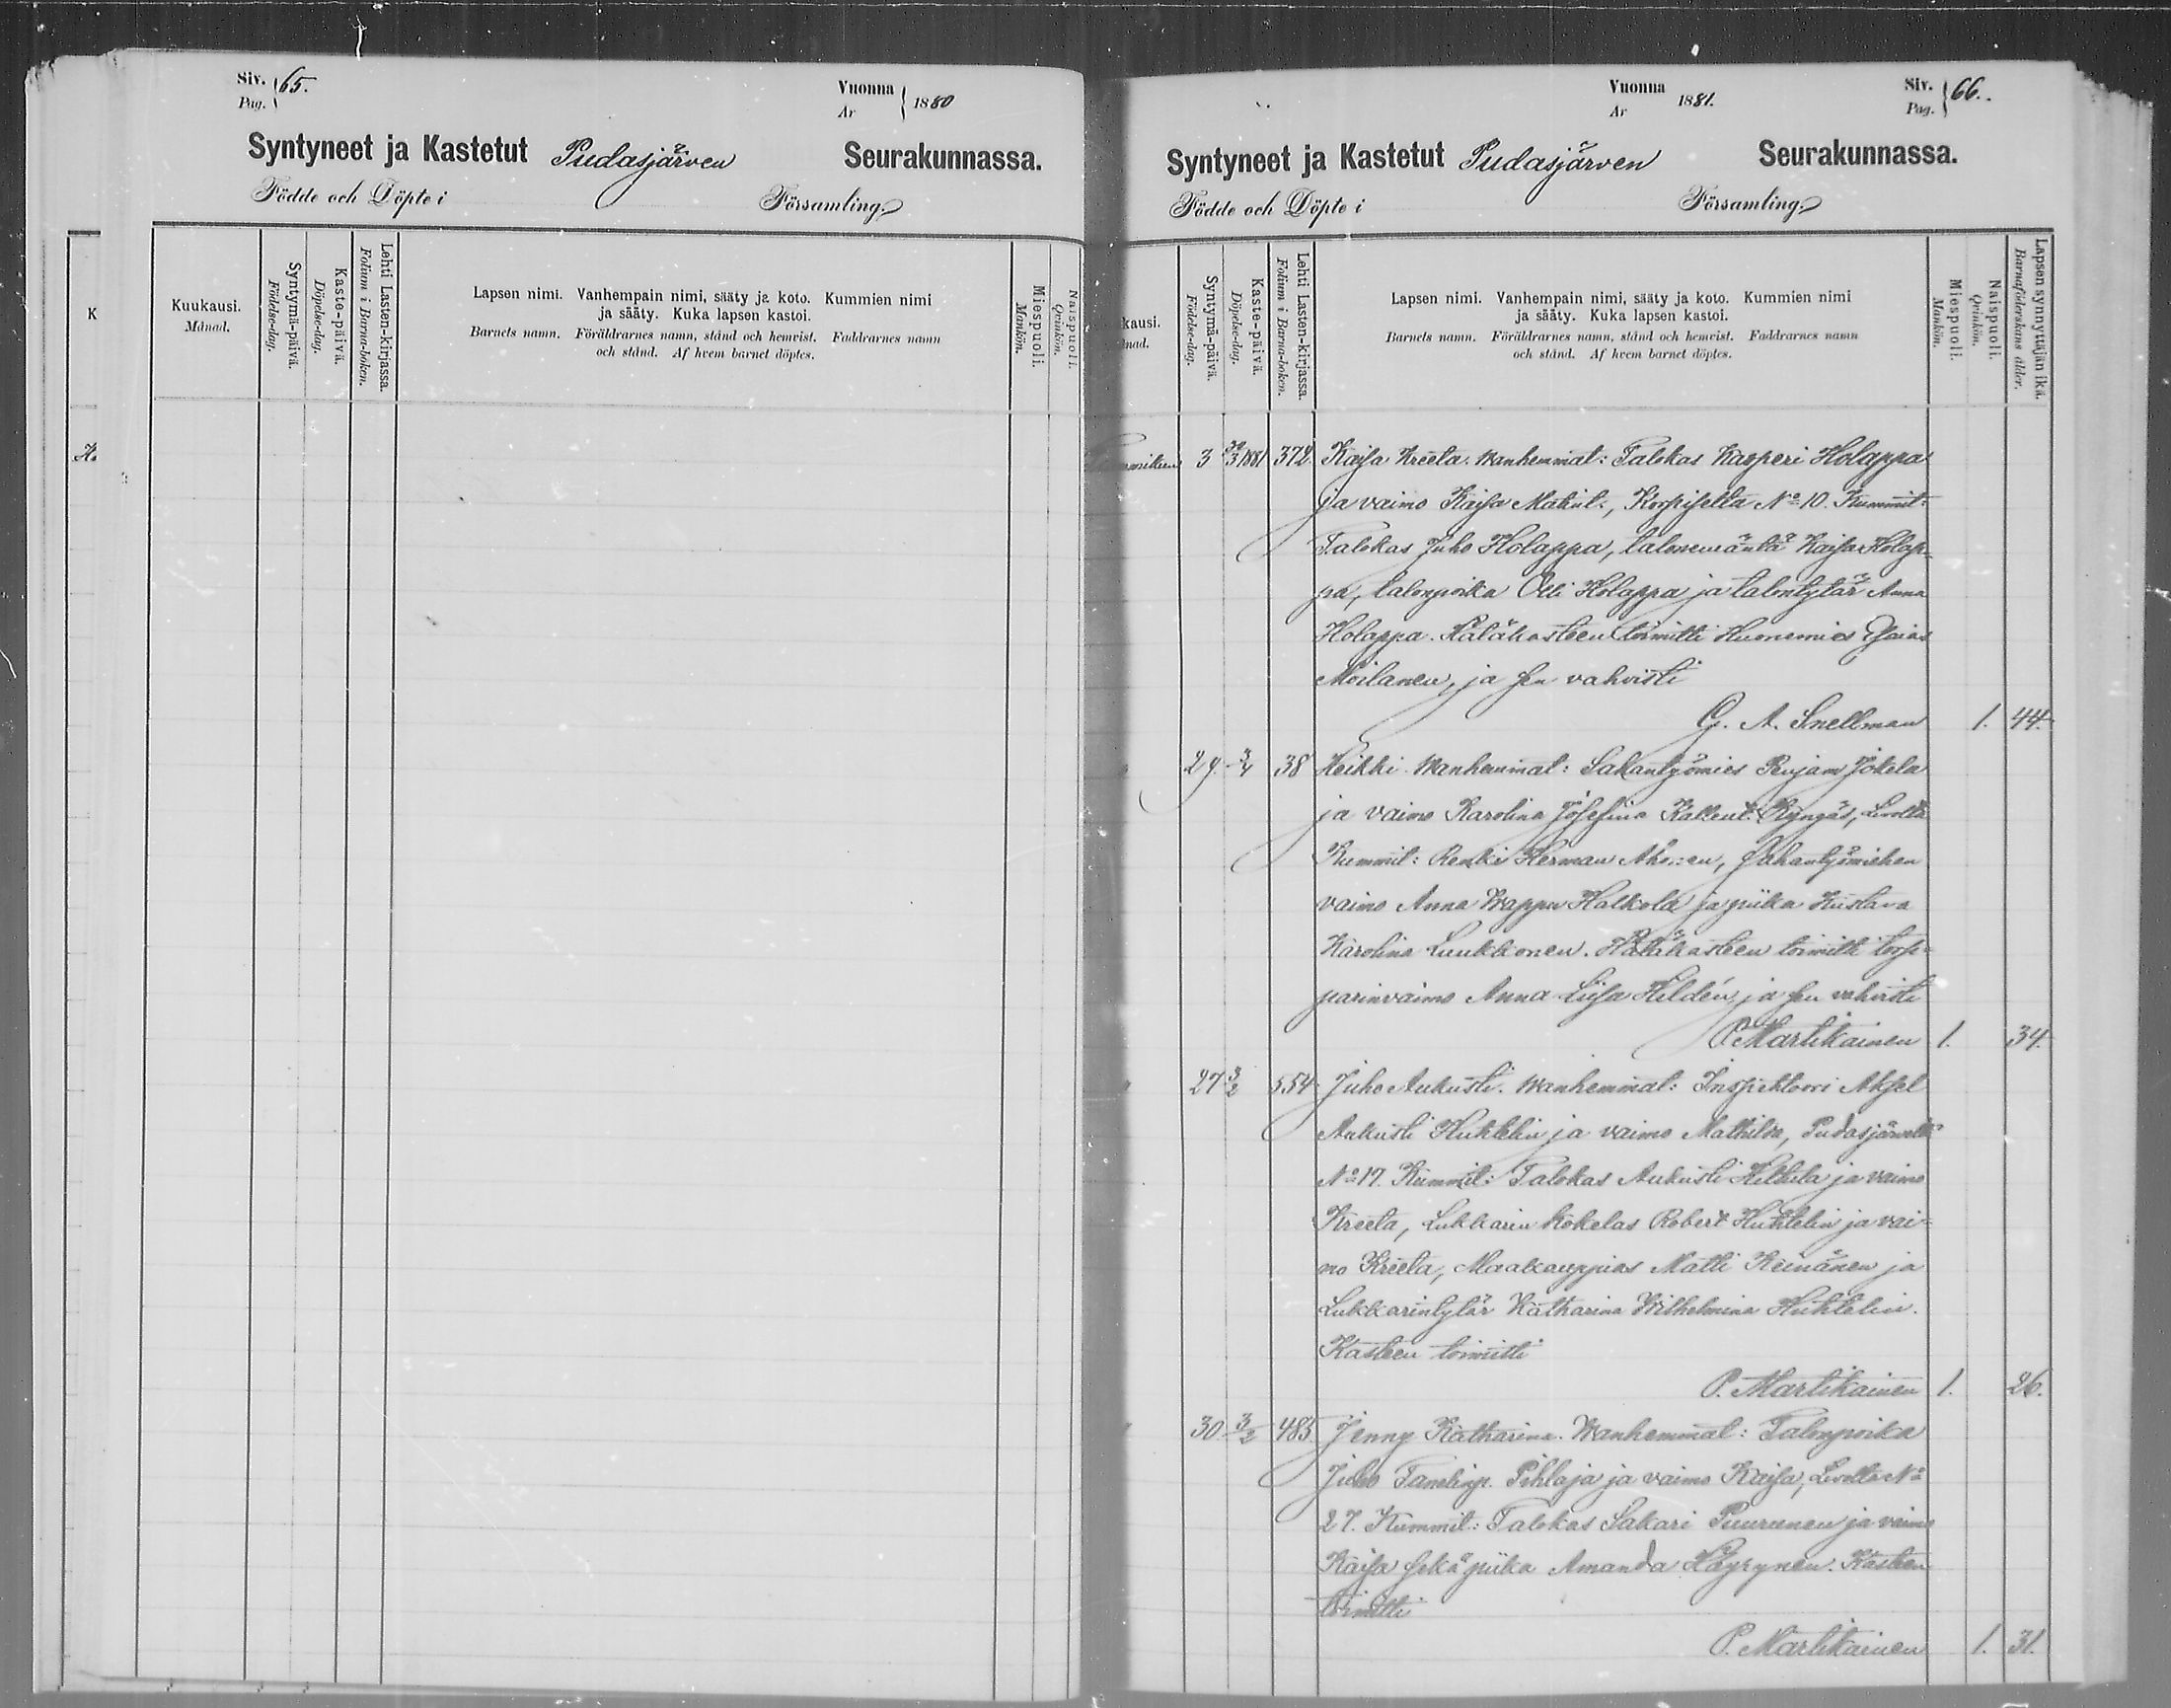 Siv. 65.
Pag.
Vuonna 1880
Ar
Syntyneet ja Kastetut Pudasjärven Seurakunnassa.
Födde och Döpte i Församling.
K
Kuukausi.
Månad.
Syntymä-päivä.
Födelse-dag.
Kaste-päivä.
Döpelse-dag.
Lehti Lasten-kirjassa.
Folium i Barna-boken.
Lapsen nimi. Vanhempain nimi, sääty ja koto. Kummien nimi
ja sääty. Kuka lapsen kastoi.
Barnets namn. Föräldrarnes namn, stånd och hemvist. Faddrarnes namn
och stånd. Af hvem barnet döptes.
Miespuoli.
Mankön.
Naispuoli.
Qvinkön.
Vuonna 1881.
Ar
Siv. 66.
Pag.
Syntyneet ja Kastetut Pudasjärven Seurakunnassa.
Födde och Döpte i Församling.
kausi.
nad.
Syntymä-päivä.
Födelse-dag.
Kaste-päivä.
Döpelse-dag.
Lehti Lasten-kirjassa.
Folium i Barna-boken.
Lapsen nimi. Vanhempain nimi, sääty ja koto. Kummien nimi
ja sääty. Kuka lapsen kastoi.
Barnets namn. Föräldrarnes namn, stånd och hemvist. Faddrarnes namn
och stånd. Af hvem barnet döptes.
Miespuoli.
Mankön.
Naispuoli.
Qvinkön.
Lapsen synnyttäjän ikä.
Barnaföderskans ålder.
3 372 Kaisa Kreeta. Wanhemmat: Talokas Kasperi Holappa
ja vaimo Kaisa Matint., Korpiselta No 10. Kummit:
Talokas Juho Holappa, talonemäntä Kaisa Holap-
pa, talonpoika Olli Holappa ja talontytär Anna
Holappa. Hätäkasteen toimitti Huonemies Esaias
Moilanen, ja sen vahvisti
G. A. Snellman 1. 44.
29. 3/4 38 Heikki. Wanhemmat: Sakantyömies Penjam Jokela
ja vaimo Karolina Josefina Kallent. Ryngäs,
Kummit: Renki Herman
vaimo Anna Wappu Halkola ja piika Kustava
Karolina Luukkonen. Hätäkasteen toimitti torp-
parinvaimo Anna Liisa Heldén, ja sen vahvisti
P. Martikainen 1. 34.
27 3/2 554 Juho Aukusti. Wanhemmat: Inspehtoori Aksel
Aukusti Huhtelin ja vaimo Mathilda, Pudasjärveltä
No 17. Kummit: Talokas Aukusti Hilthila ja vaimo
Kreeta, Lukkarin kokelas Robert Huhtelin ja vai-
mo Kreeta, Maakauppias Matti Keinänen ja
Lukkarintytär Katharina Wilhelmina Huhtelin.
Kasteen toimitti
P. Martikainen 1. 26.
30 3/2 485 Jenny Katharina. Wanhemmat: Talonpoika
Juho Tanelinp. Pihlaja ja vaimo Kaisa, No
27. Kummit: Talokas Sakari Puurunen ja vaimo
Kaisa sekä piika Amanda Häyrynen. Kasteen
toimitti
P. Martikainen 1. 31.